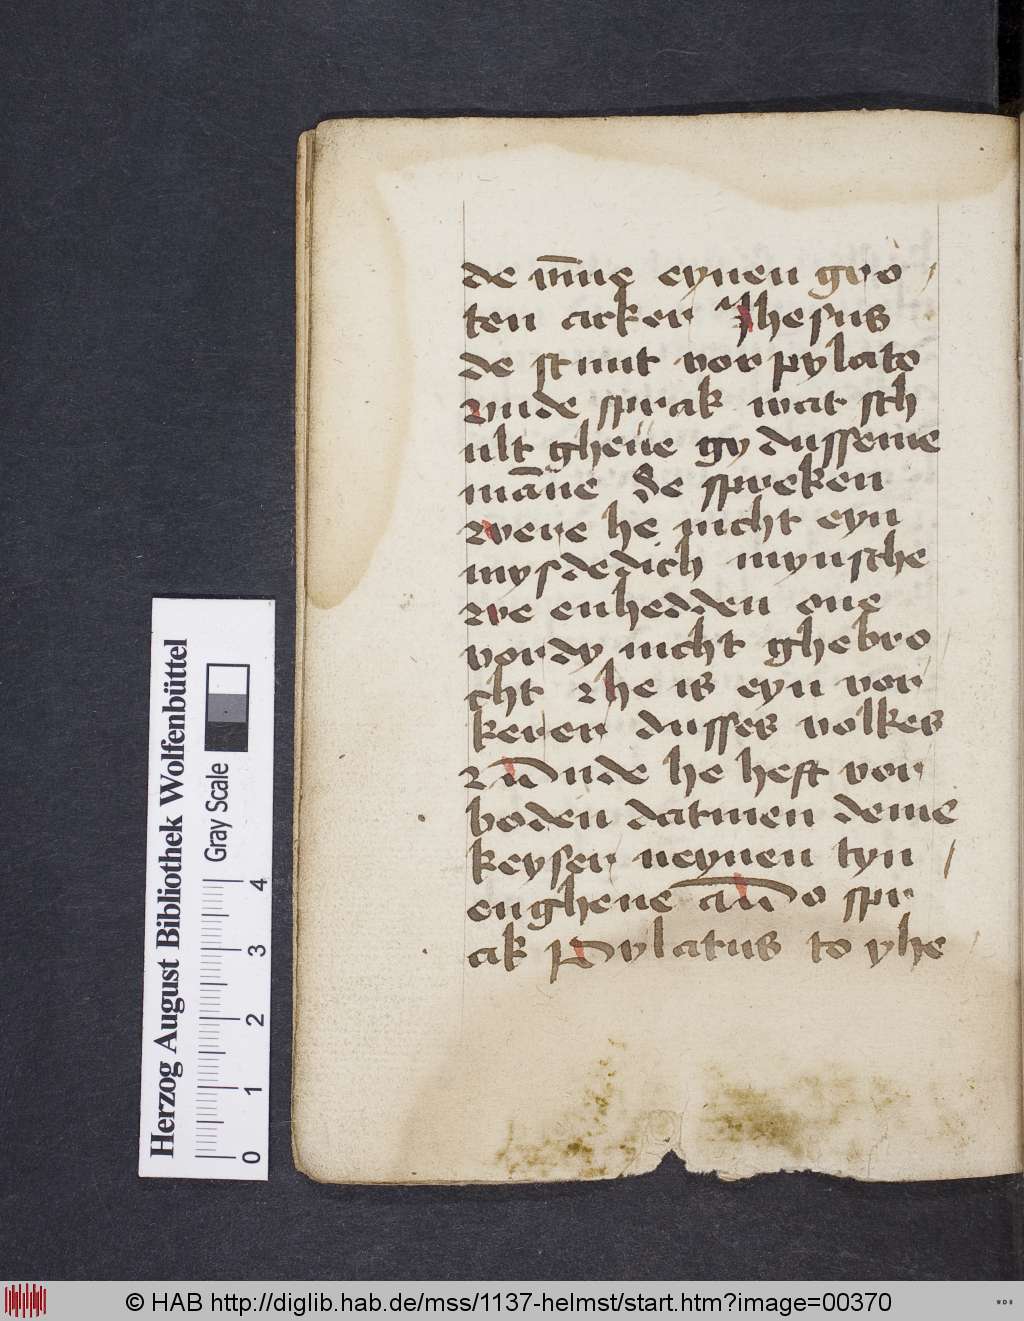 de vm̄e eynen gro
ten acker Jhesus
de stunt vor pylato
vnde sprak wat sch
ult gheue gy dusseme
mān̄e De spreken
were he nicht eyn
mysdedich mynsche
we enhedden one
vor dy nicht ghebro
cht he is eyn vor
kerer dusses volkes
vn̄de he heft vor
boden datmen deme
keyser neynen tyn
en gheue do spr
ak Pylatus to yhe
Herzog August Bibliothek Wolfenbüttel
Gray Scale
0 1 2 3 4
© HAB http://diglib.hab.de/mss/1137-helmst/start.htm?image=00370